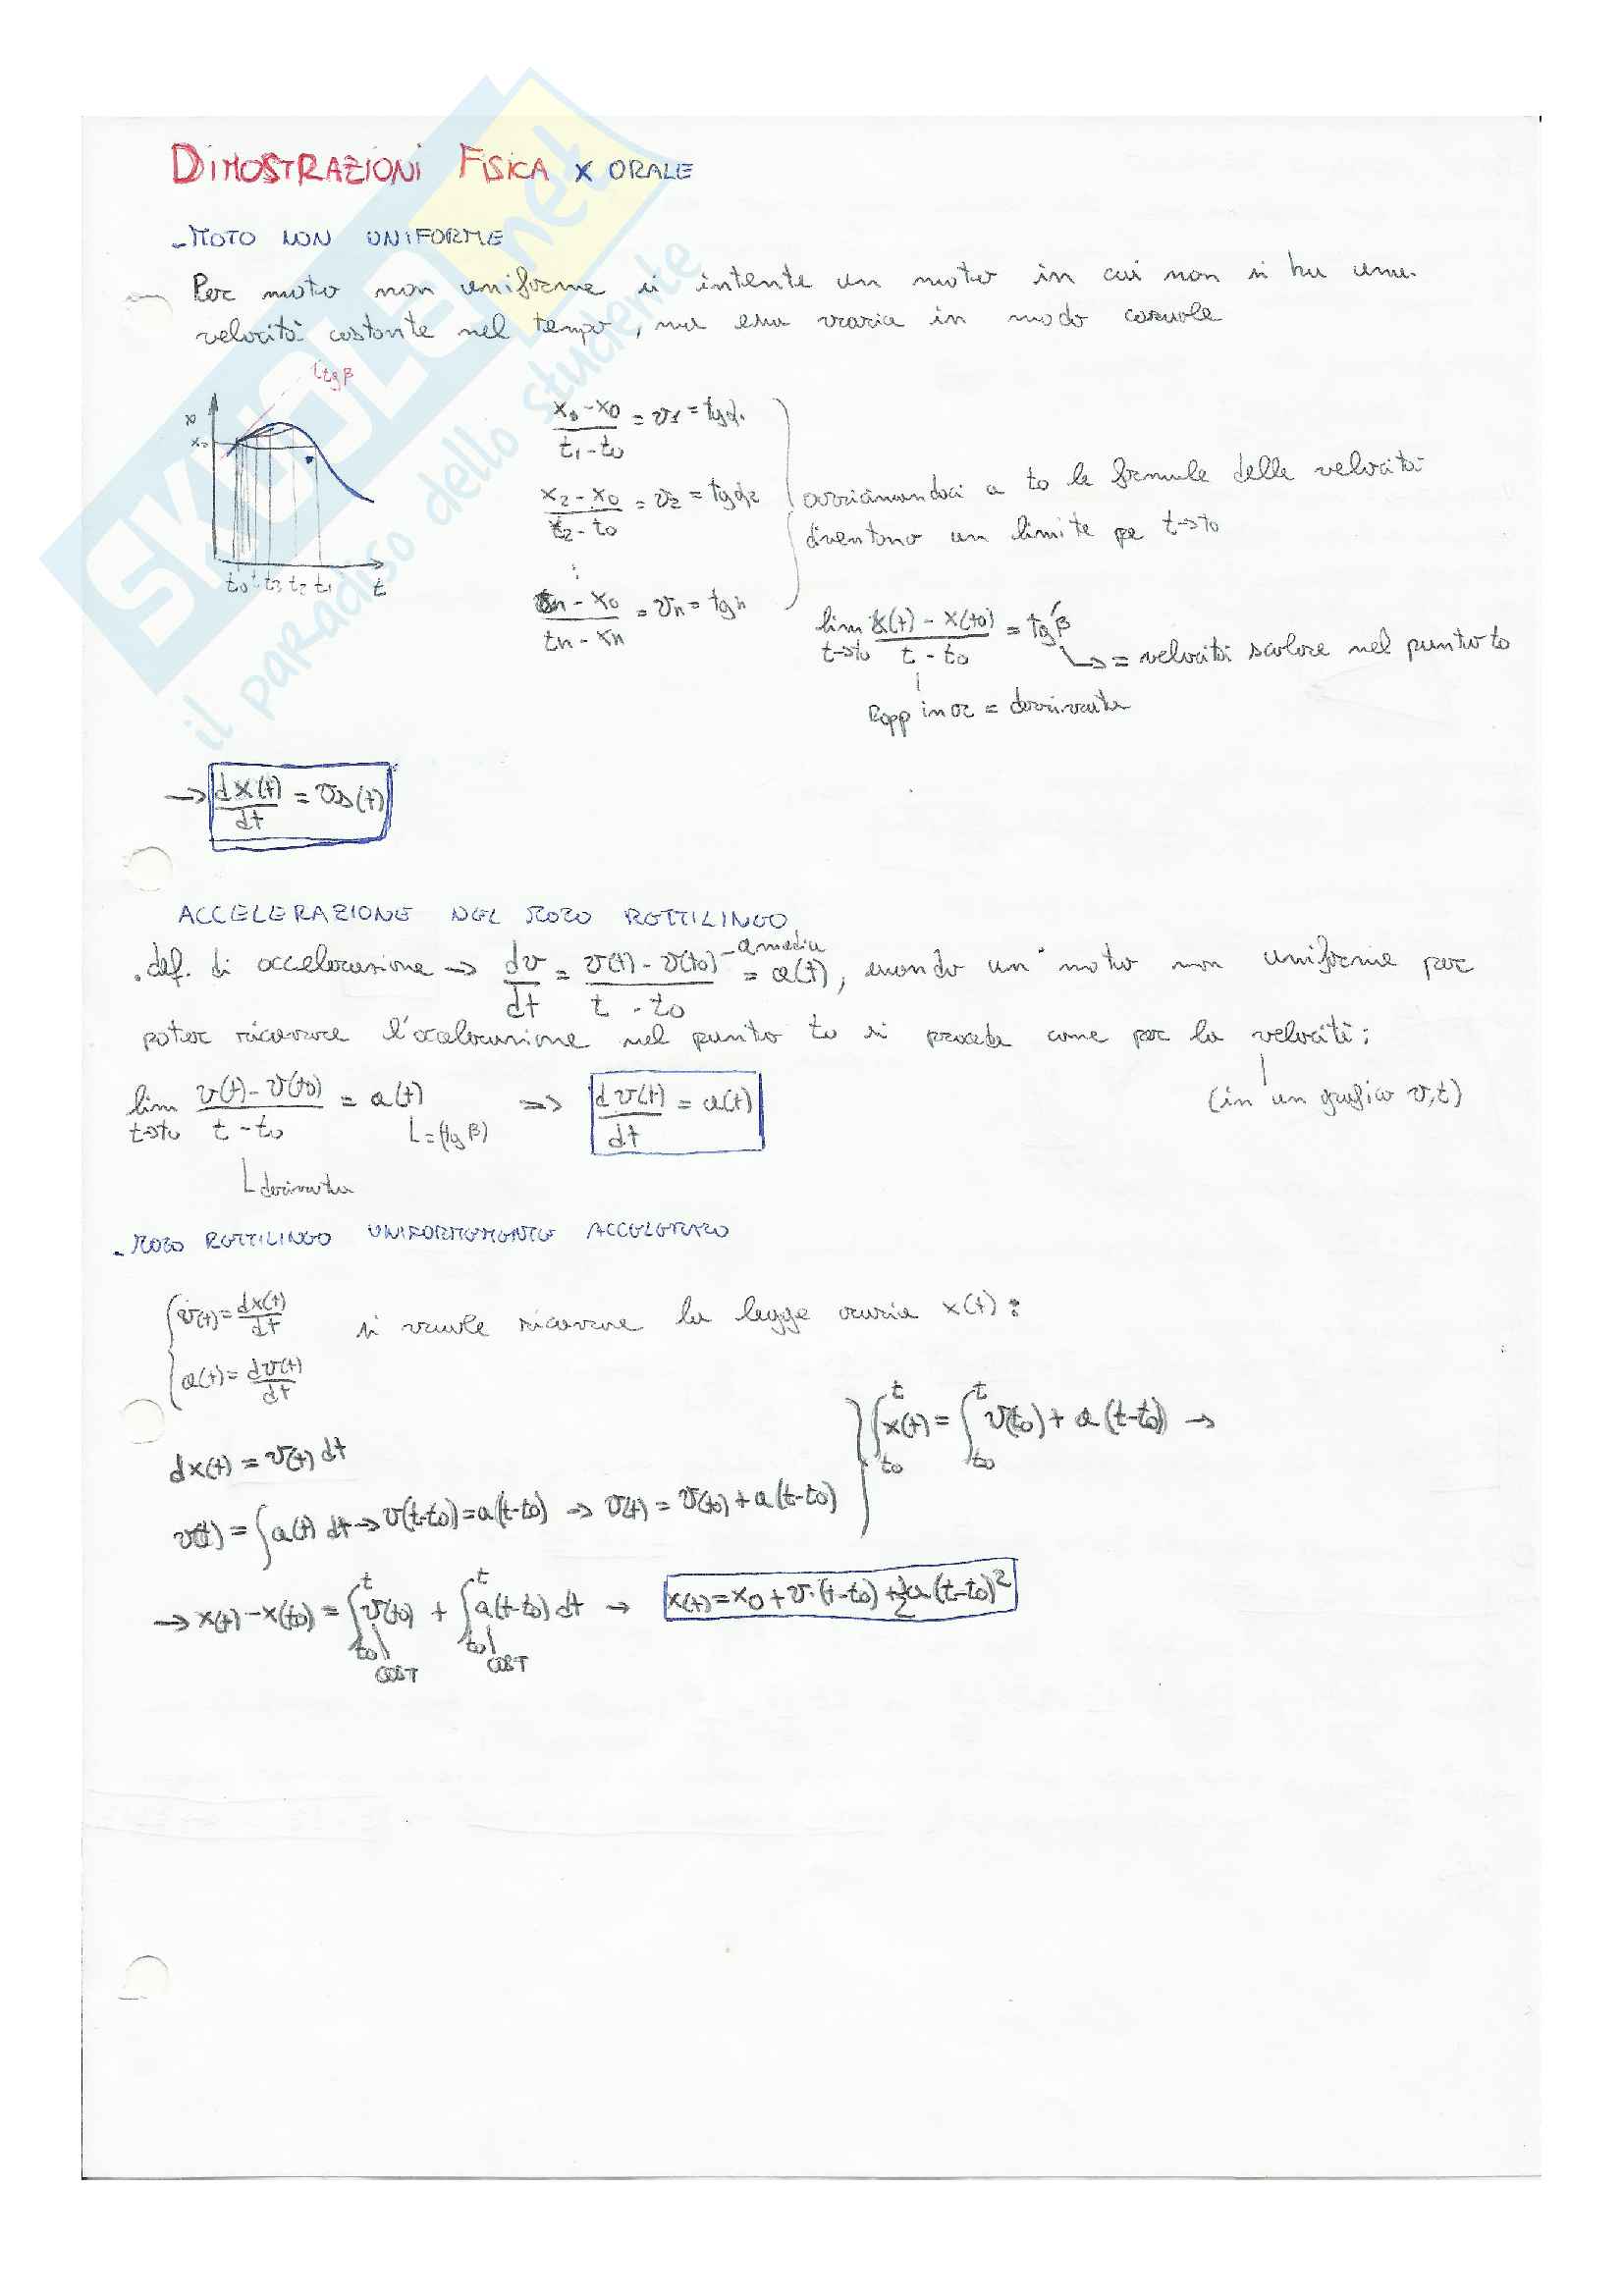 DIMOSTRAZIONI FISICA X ORALE
- MOTO NON UNIFORME
Per moto non uniforme si intente un moto in cui non si ha una
velocità costante nel tempo, ma essa varia in modo casuale
tg β
x
t0 t3 t2 t1 t
x1 - x0 / t1 - t0 = v1 = tgα1
x2 - x0 / t2 - t0 = v2 = tgα2
avvicinandoci a t0 le formule delle velocità
diventano un limite pe t→t0
xn - x0 / tn - xn = vn = tg n
lim t→t0 x(t) - x(t0) / t - t0 = tg β
↳ = velocità scalare nel punto t0
Rapp incr = derivata
→ dx(t)/dt = vs(t)
ACCELERAZIONE NEL MOTO RETTILINEO
. def. di accelerazione → dv/dt = v(t) - v(t0) / t - t0 = a(t), essendo un moto non uniforme per
- a media
poter ricavare l'accelerazione nel punto t0 si procede come per la velocità:
(in un grafico v,t)
lim t→t0 v(t) - v(t0) / t - t0 = a(t) ⇒ dv(t)/dt = a(t)
L = (tg β)
L derivata
- MOTO RETTILINEO UNIFORMEMENTE ACCELERATO
{ v(t) = dx(t)/dt
a(t) = dv(t)/dt
si vuole ricavare la legge oraria x(t):
dx(t) = v(t) dt
v(t) = ∫ a(t) dt → v(t-t0) = a(t-t0) → v(t) = v(t0) + a(t-t0)
} ∫t0^t x(t) = ∫t0^t v(t0) + a(t-t0) →
→ x(t) - x(t0) = ∫t0^t v(t0) + ∫t0^t a(t-t0) dt → x(t) = x0 + v·(t-t0) + 1/2 a (t-t0)²
COST COST
SKUOLA.net
il paradiso dello studente